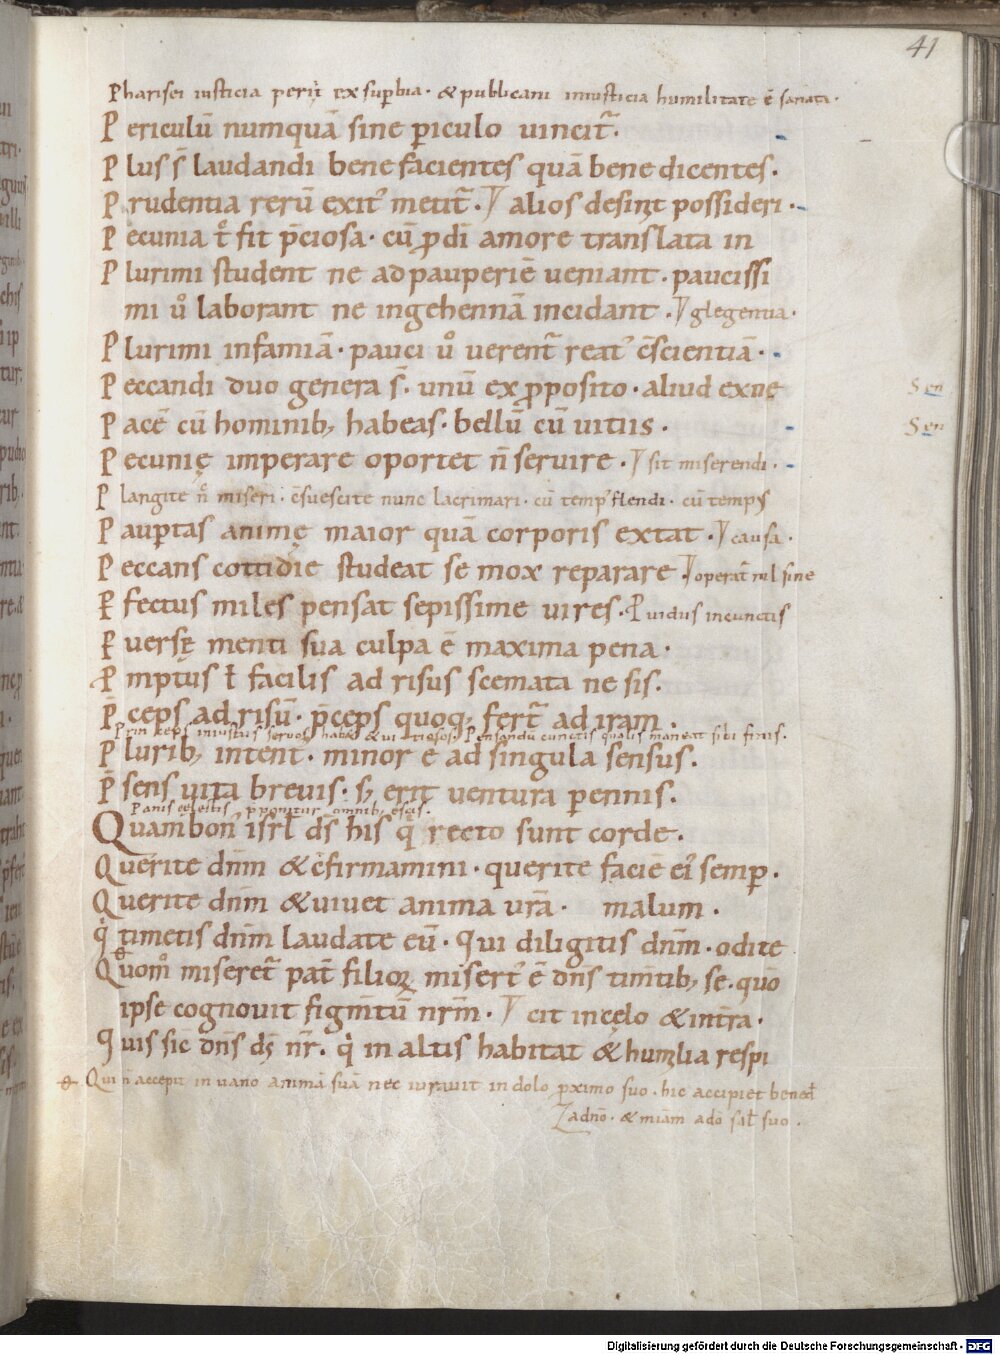 41
Pharisei iusticia periit ex suꝑbia · & pubblicani iniusticia humilitate ē sanata ·
Periculū numquā sine ꝑiculo uincit̄ ·
Plus s̄ laudandi bene facientes quā bene dicentes ·
Prudentia rerū exit᾽ metit̄ · alios desinr̄t possideri ·
Pecunia t̄ fit p̄ciosa · cū ꝓdī amore translata in
Plurimi student ne ad pauperiē ueniant · paucissi
mi ů laborant ne ingehennā incidant · glegentia ·
Plurimi infamiā · pauci ů uerent̄ reat᾽ c̄scientiā ·
Peccandi duo genera s̄ · unū ex ꝓposito · aliud ex ne Sen
Pacē cū hominib; habeas · bellū cū uitiis · Sen
Pecunię imperare oportet n̄ seruire · sit miserendi ·
Plangite n̊ miseri · c̄suescite nunc lacrimari · cū temp᾽ flendi · cū temp᾽
Pauꝑtas animę maior quā corporis extat · causa ·
Peccans cottidie studeat se mox reparare operat̄ nil sine
Ꝑfectus miles pensat sepissime uires · Ꝓuidus in cunctis
Ꝑuersę menti sua culpa ē maxima pena ·
Ꝓmptus ł facilis ad risus scemata ne sis ·
P̄ceps ad risū · p̄ceps quoq; fert̄ ad iram ·
Princeps iniustus seruos habet & uitiosos · Pensandū cunctis qualis maneat sibi finis ·
Plurib; intent᾽ · minor ē ad singula sensus ·
P̄sens uita breuis · s; erit uentura ꝑennis ·
Panis celestis ꝓponitur omnib; escis ·
Quam bon᾽ isrł ds̄ his q̇ recto sunt corde ·
Querite dn̄m & c̄firmamini · querite faciē ei᾽ semꝑ ·
Querite dn̄m & uiuet anima ur̄a · malum ·
Q̇ timetis dn̄m laudate eū · qui diligitis dn̄m · odite
Quom̊ miseret̄ pat̄ filioꝝ misert᾽ ē dn̄s tim̄tib; se · quō
ipse cognouit figm̄tū nr̄m · cit in cęlo & int̄ra ·
Quis sic̄ dn̄s ds̄ nr̄ · q̇ in altis habitat & humilia respi
Qui n̄ accepit in uano animā suā nec iurauit in dolo ꝓximo suo · hic accipiet bened
a dn̄o · & m̄iam a dō sal suo ·
Digitalisierung gefördert durch die Deutsche Forschungsgemeinschaft - DFG